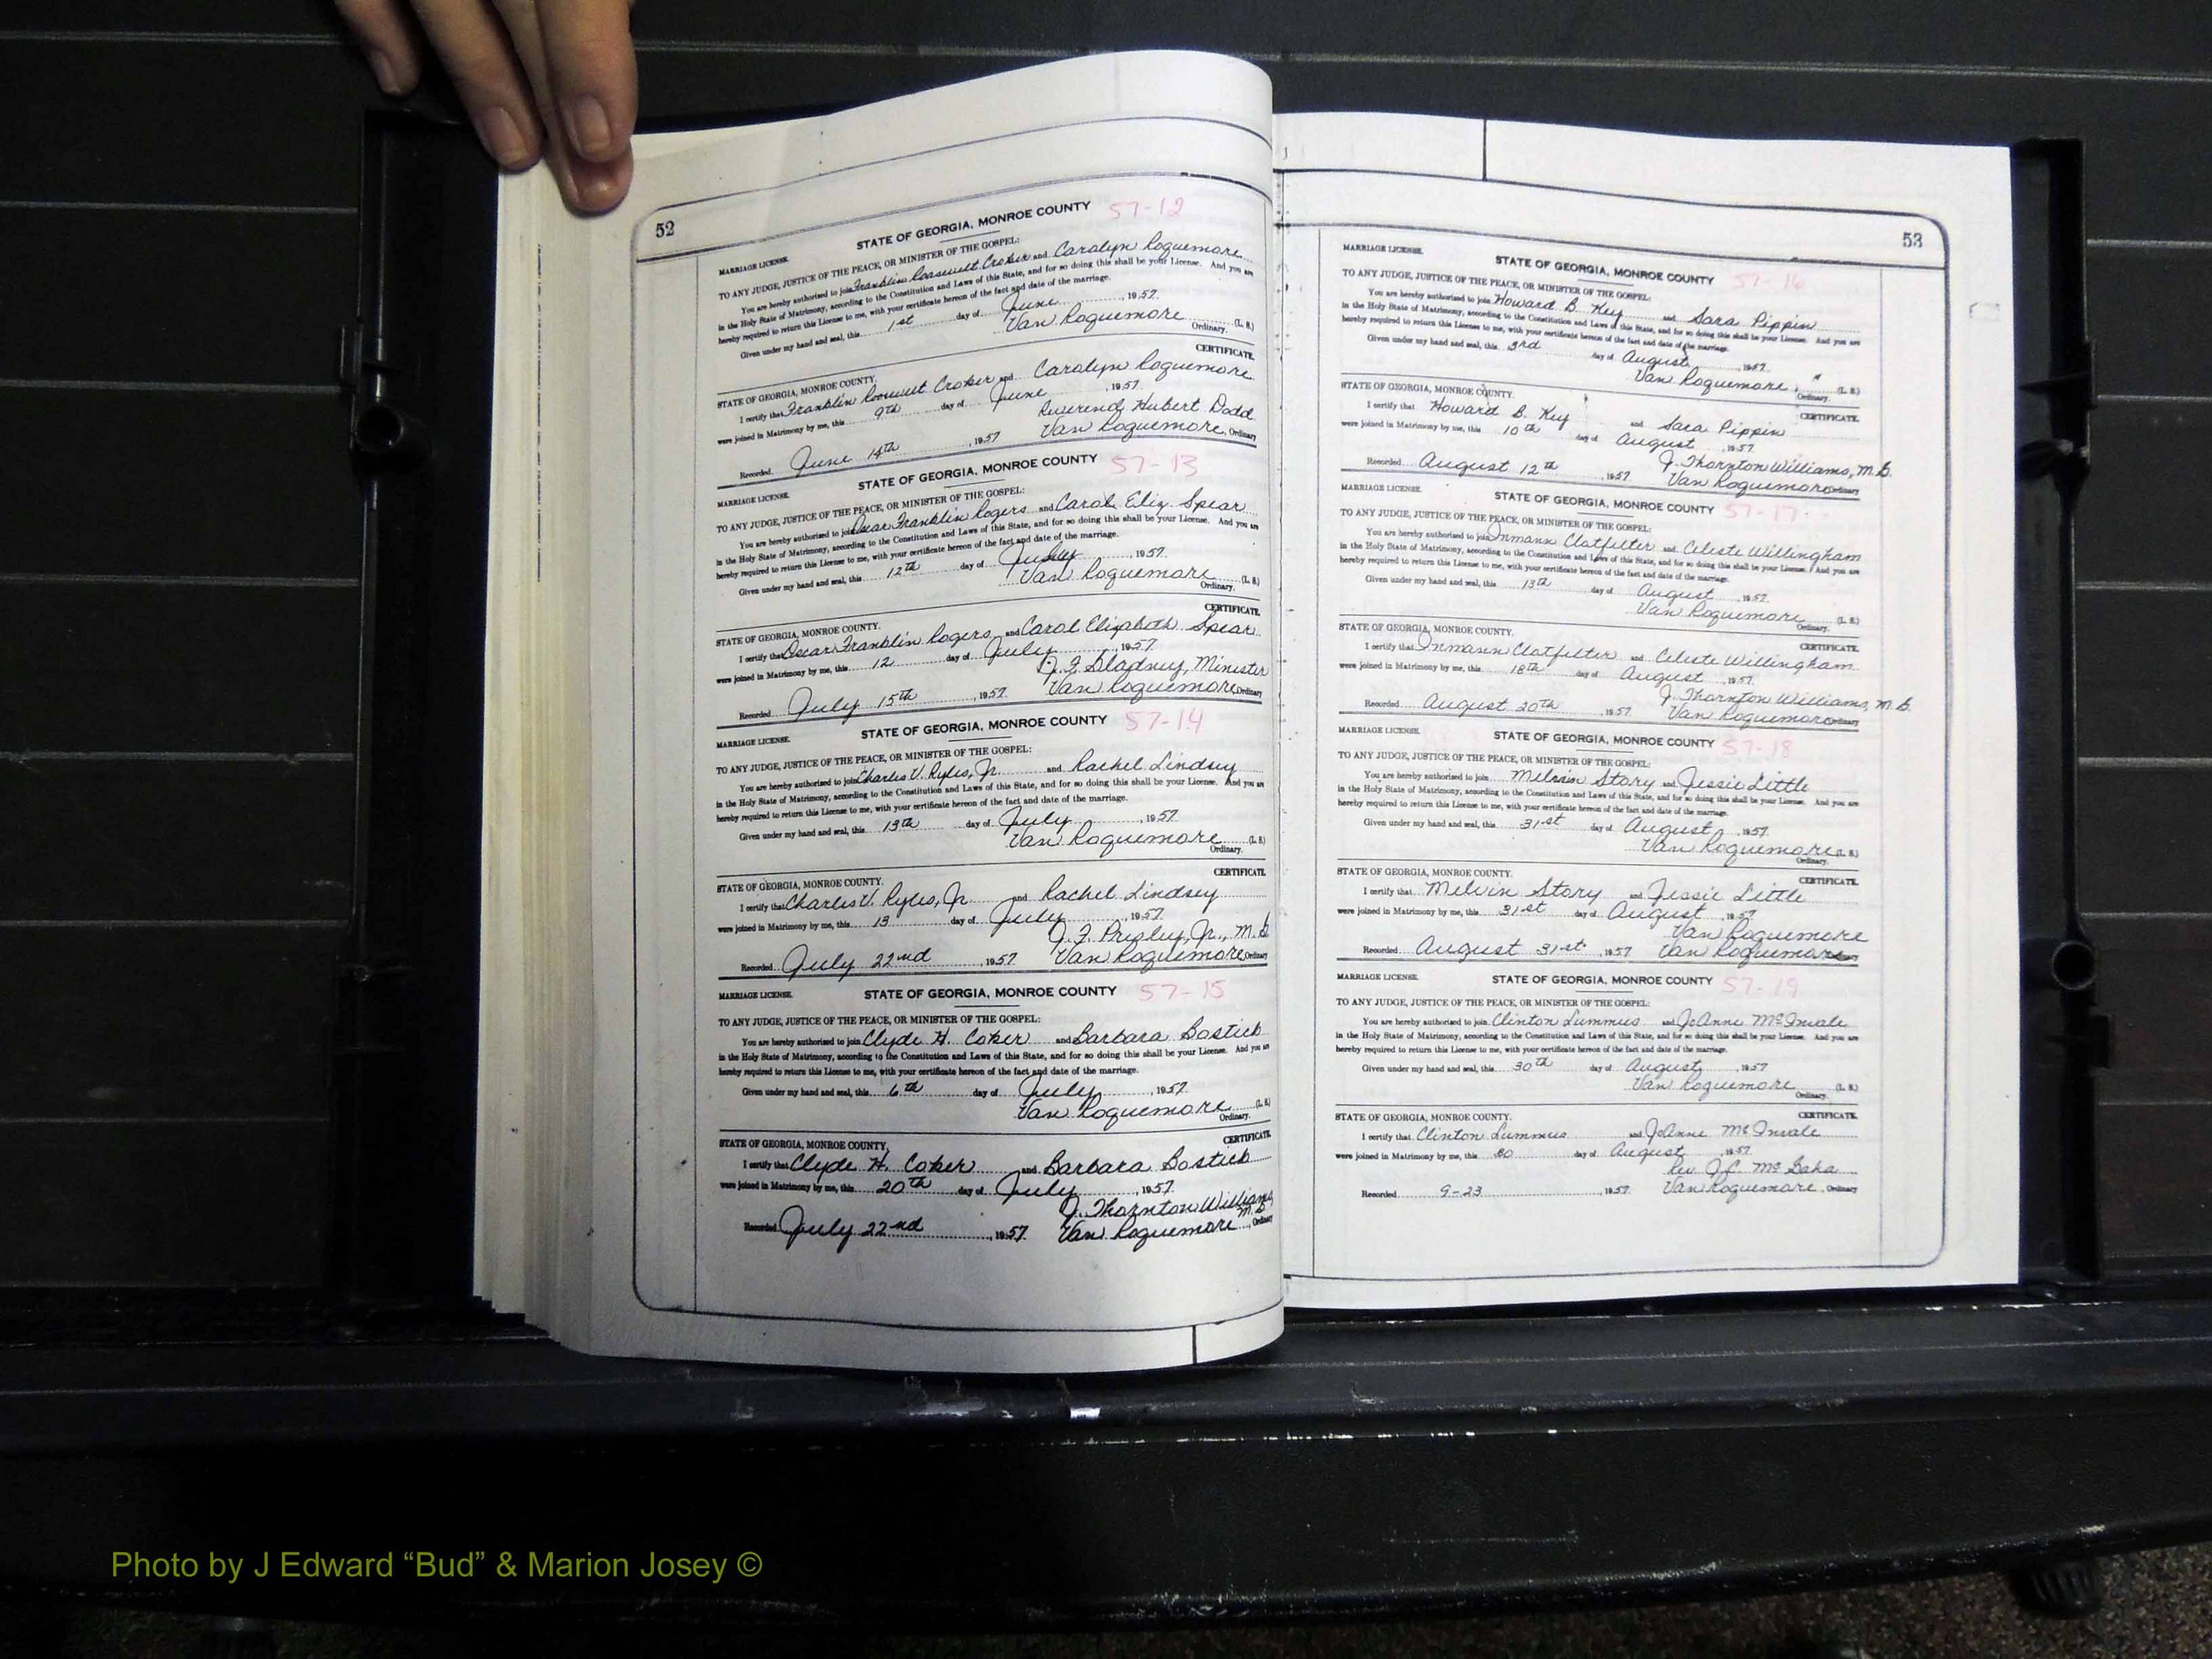 52
STATE OF GEORGIA, MONROE COUNTY 57-12
MARRIAGE LICENSE.
TO ANY JUDGE, JUSTICE OF THE PEACE, OR MINISTER OF THE GOSPEL:
You are hereby authorized to join Franklin Roosevelt Croker and Carolyn Roquemore
in the Holy State of Matrimony, according to the Constitution and Laws of this State, and for so doing this shall be your License. And you are
hereby required to return this License to me, with your certificate hereon of the fact and date of the marriage.
Given under my hand and seal, this 1st day of June, 1957.
Van Roquemore (L. S.)
Ordinary.
CERTIFICATE.
STATE OF GEORGIA, MONROE COUNTY.
I certify that Franklin Roosevelt Croker and Carolyn Roquemore
were joined in Matrimony by me, this 9th day of June, 1957.
Reverend Hubert Dodd
Recorded June 14th, 1957 Van Roquemore, Ordinary
STATE OF GEORGIA, MONROE COUNTY 57-13
MARRIAGE LICENSE.
TO ANY JUDGE, JUSTICE OF THE PEACE, OR MINISTER OF THE GOSPEL:
You are hereby authorized to join Oscar Franklin Rogers and Carol Eliz. Spear
in the Holy State of Matrimony, according to the Constitution and Laws of this State, and for so doing this shall be your License. And you are
hereby required to return this License to me, with your certificate hereon of the fact and date of the marriage.
Given under my hand and seal, this 12th day of July, 1957.
Van Roquemore (L. S.)
Ordinary.
CERTIFICATE.
STATE OF GEORGIA, MONROE COUNTY.
I certify that Oscar Franklin Rogers and Carol Elizabeth Spear
were joined in Matrimony by me, this 12 day of July, 1957.
J. F. Gladney, Minister
Recorded July 15th, 1957. Van Roquemore, Ordinary
STATE OF GEORGIA, MONROE COUNTY 57-14
MARRIAGE LICENSE.
TO ANY JUDGE, JUSTICE OF THE PEACE, OR MINISTER OF THE GOSPEL:
You are hereby authorized to join Charles V. Ryles, Jr. and Rachel Lindsey
in the Holy State of Matrimony, according to the Constitution and Laws of this State, and for so doing this shall be your License. And you an
hereby required to return this License to me, with your certificate hereon of the fact and date of the marriage.
Given under my hand and seal, this 13th day of July, 1957.
Van Roquemore (L. S.)
Ordinary.
CERTIFICATE.
STATE OF GEORGIA, MONROE COUNTY.
I certify that Charles V. Ryles, Jr. and Rachel Lindsey
were joined in Matrimony by me, this 13 day of July, 1957
J. F. Presley, Jr., M. G
Recorded July 22nd, 1957. Van Roquemore, Ordinary
MARRIAGE LICENSE. STATE OF GEORGIA, MONROE COUNTY 57-15
TO ANY JUDGE, JUSTICE OF THE PEACE, OR MINISTER OF THE GOSPEL:
You are hereby authorized to join Clyde H. Coker and Barbara Bostick
in the Holy State of Matrimony, according to the Constitution and Laws of this State, and for so doing this shall be your License. And you an
hereby required to return this License to me, with your certificate hereon of the fact and date of the marriage.
Given under my hand and seal, this 6th day of July, 1957.
Van Roquemore (L. S.)
Ordinary.
CERTIFICATE.
STATE OF GEORGIA, MONROE COUNTY,
I certify that Clyde H. Coker and Barbara Bostick
were joined in Matrimony by me, this 20th day of July, 1957.
J. Thornton Williams
M.G
Recorded July 22nd, 1957. Van Roquemore, Ordinary
53
MARRIAGE LICENSE.
STATE OF GEORGIA, MONROE COUNTY 57-16
TO ANY JUDGE, JUSTICE OF THE PEACE, OR MINISTER OF THE GOSPEL:
You are hereby authorized to join Howard B. Key and Sara Pippin
in the Holy State of Matrimony, according to the Constitution and Laws of this State, and for so doing this shall be your License. And you are
hereby required to return this License to me, with your certificate hereon of the fact and date of the marriage.
Given under my hand and seal, this 3rd day of August, 1957.
Van Roquemore, (L. S.)
Ordinary.
STATE OF GEORGIA, MONROE COUNTY.
CERTIFICATE.
I certify that Howard B. Key and Sara Pippin
were joined in Matrimony by me, this 10th day of August, 1957.
J. Thornton Williams, M.G.
Recorded August 12th, 1957 Van Roquemore Ordinary
MARRIAGE LICENSE.
STATE OF GEORGIA, MONROE COUNTY 57-17
TO ANY JUDGE, JUSTICE OF THE PEACE, OR MINISTER OF THE GOSPEL:
You are hereby authorized to join Inmann Clotfelter and Celeste Willingham
in the Holy State of Matrimony, according to the Constitution and Laws of this State, and for so doing this shall be your License. And you are
hereby required to return this License to me, with your certificate hereon of the fact and date of the marriage.
Given under my hand and seal, this 13th day of August, 1957.
Van Roquemore (L. S.)
Ordinary.
STATE OF GEORGIA, MONROE COUNTY.
CERTIFICATE.
I certify that Inmann Clotfelter and Celeste Willingham
were joined in Matrimony by me, this 18th day of August, 1957.
J. Thornton Williams, M.G.
Recorded August 20th, 1957. Van Roquemore Ordinary
MARRIAGE LICENSE.
STATE OF GEORGIA, MONROE COUNTY 57-18
TO ANY JUDGE, JUSTICE OF THE PEACE, OR MINISTER OF THE GOSPEL:
You are hereby authorized to join Melvin Story and Jessie Little
in the Holy State of Matrimony, according to the Constitution and Laws of this State, and for so doing this shall be your License. And you are
hereby required to return this License to me, with your certificate hereon of the fact and date of the marriage.
Given under my hand and seal, this 31st day of August, 1957.
Van Roquemore (L. S.)
Ordinary.
STATE OF GEORGIA, MONROE COUNTY.
CERTIFICATE.
I certify that Melvin Story and Jessie Little
were joined in Matrimony by me, this 31st day of August, 1957
Van Roquemore
Recorded August 31st, 1957 Van Roquemore
MARRIAGE LICENSE.
STATE OF GEORGIA, MONROE COUNTY 57-19
TO ANY JUDGE, JUSTICE OF THE PEACE, OR MINISTER OF THE GOSPEL:
You are hereby authorized to join Clinton Lummus and JoAnne McInvale
in the Holy State of Matrimony, according to the Constitution and Laws of this State, and for so doing this shall be your License. And you are
hereby required to return this License to me, with your certificate hereon of the fact and date of the marriage.
Given under my hand and seal, this 30th day of August, 1957
Van Roquemore (L. S.)
Ordinary.
STATE OF GEORGIA, MONROE COUNTY.
CERTIFICATE.
I certify that Clinton Lummus and JoAnne McInvale
were joined in Matrimony by me, this 30 day of August, 1957.
Rev. J.C. McGaha
Recorded 9-23, 1957. Van Roquemore, Ordinary
Photo by J Edward “Bud” & Marion Josey ©